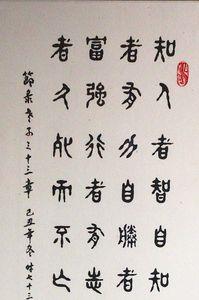 知人者智自知
者有力自勝者
富強行者有志
者久死而不亡
節录老子三十三章 己丑年冬 時七十三